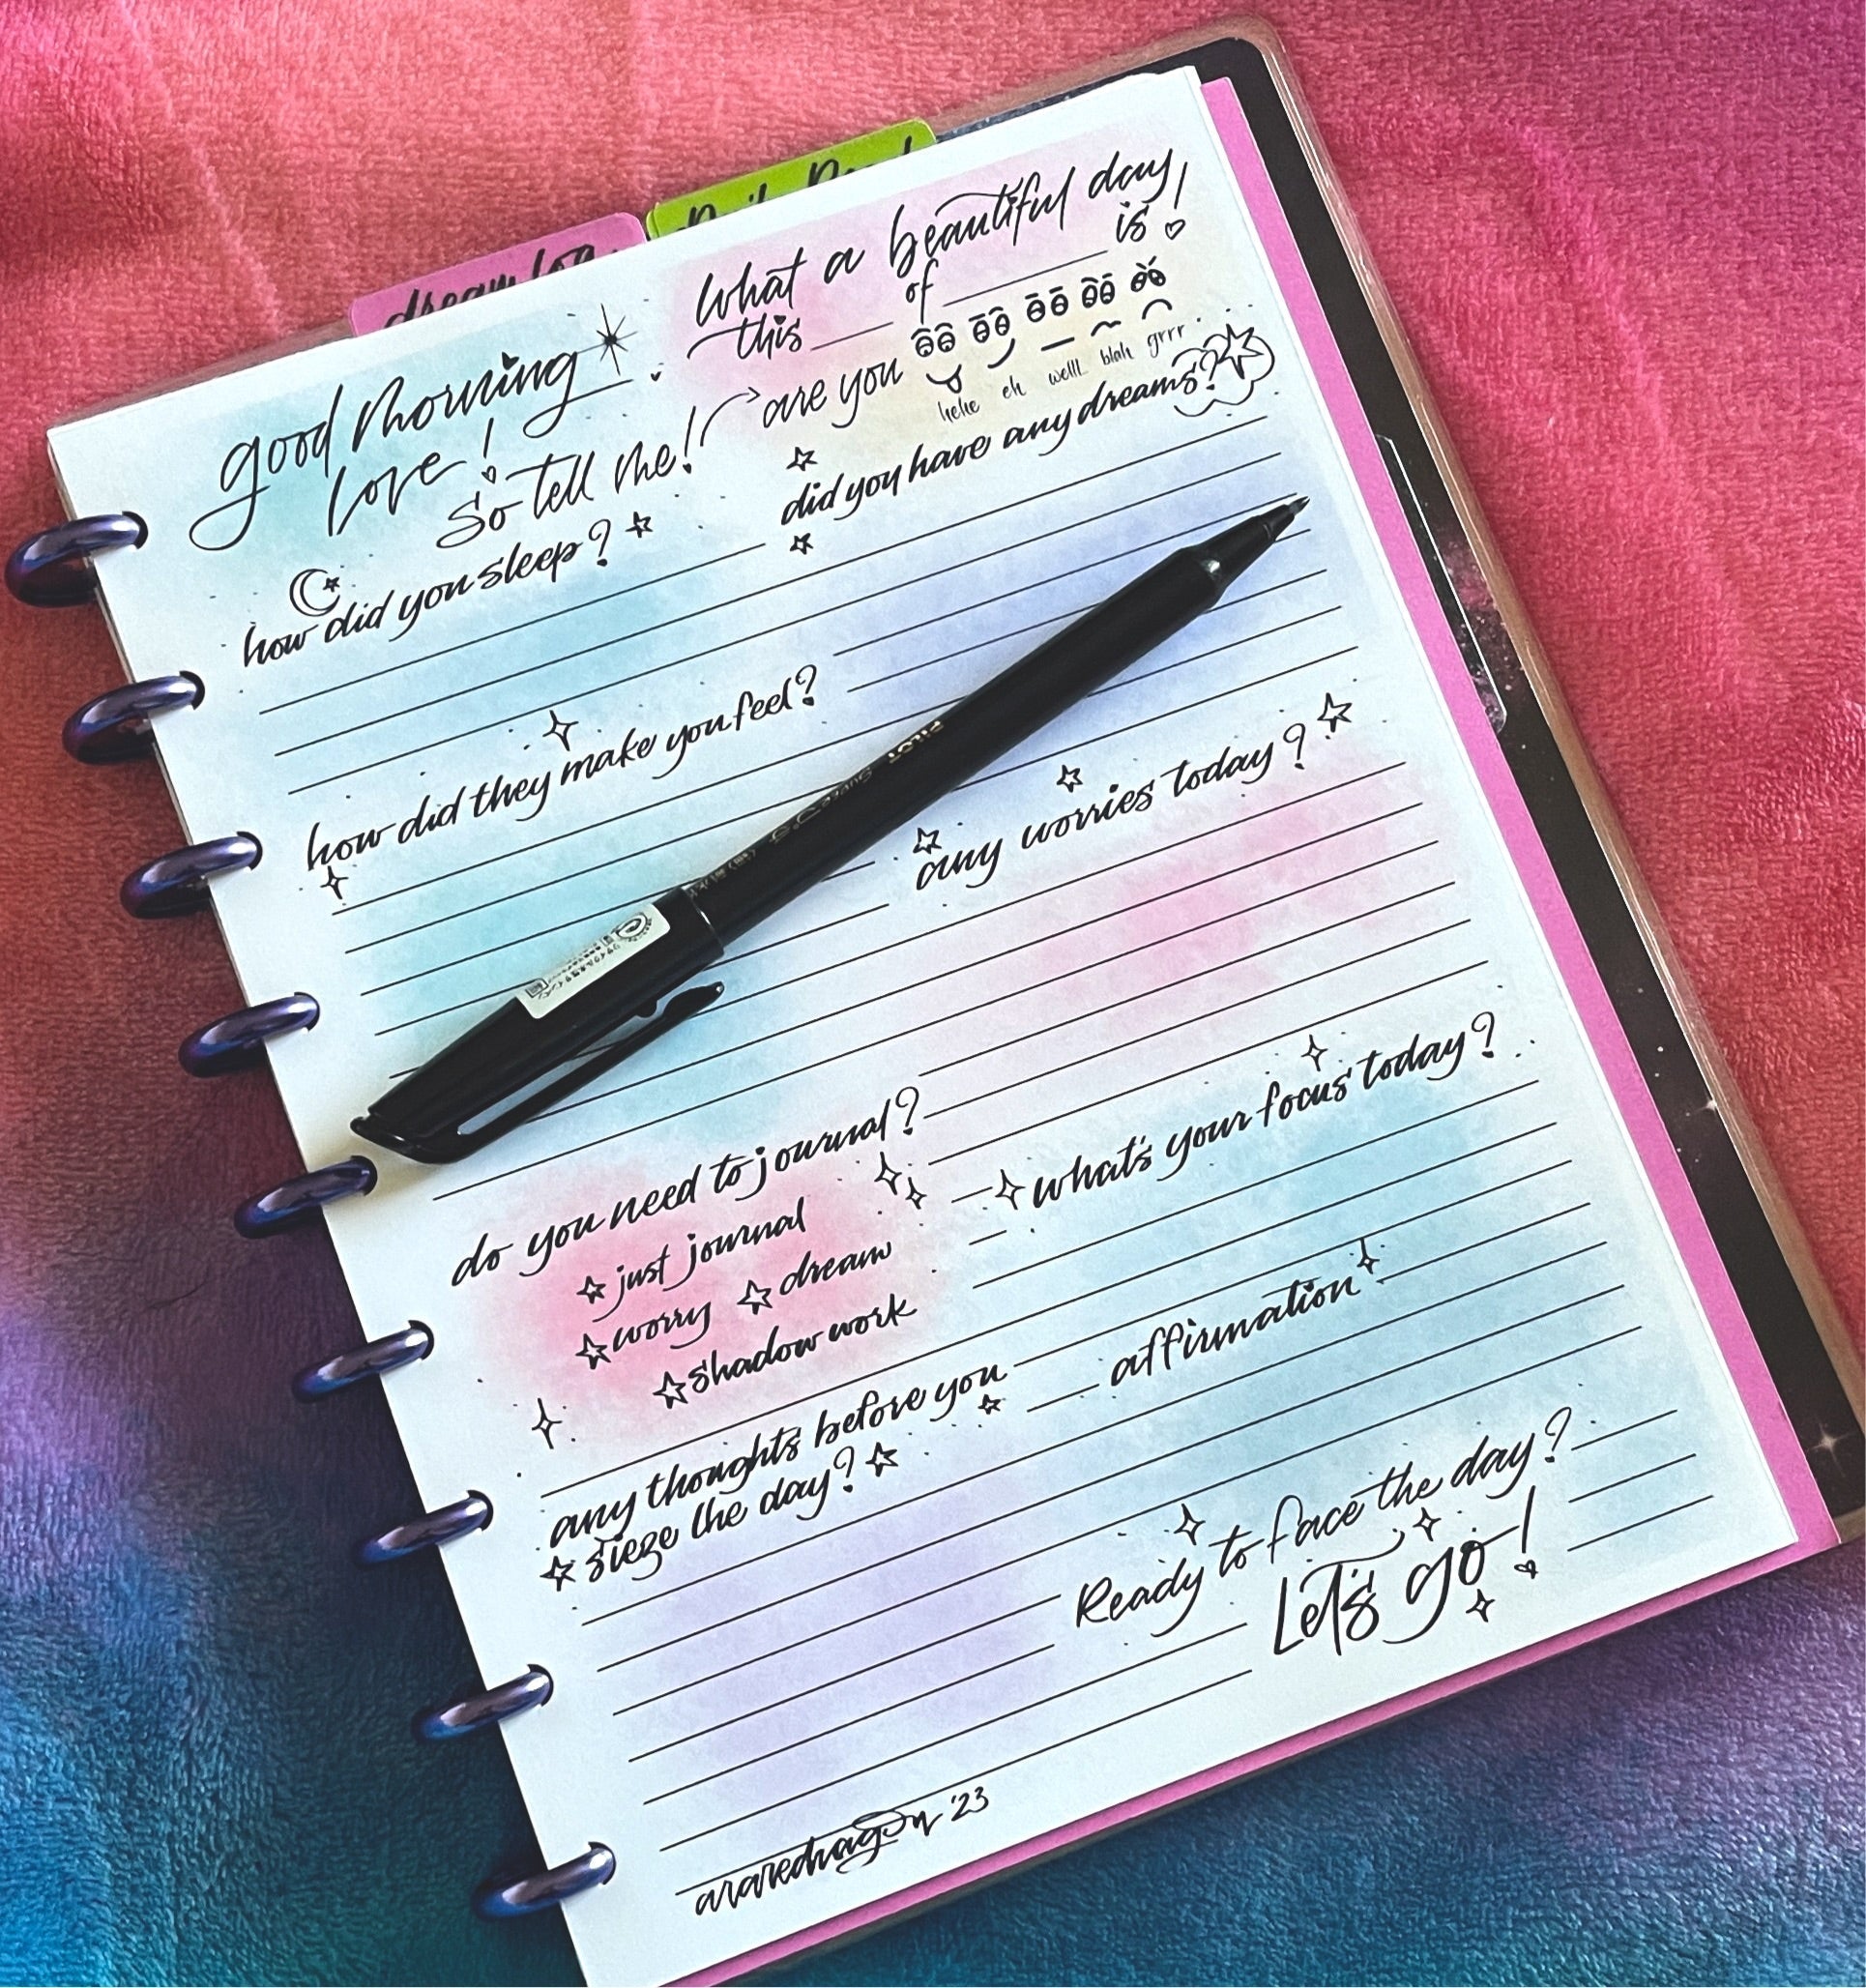 dream log
Daily
good morning
love!
So tell me!
What a beautiful day,
this ____ of ________ is!
are you
hehe eh welll.. blah grrr..
how did you sleep?
did you have any dreams?
how did they make you feel?
any worries today?
PILOT
do you need to journal?
just journal
worry dream
shadow work
what's your focus today?
affirmation
any thoughts before you
sieze the day?
Ready to face the day?
Let's go!
'23